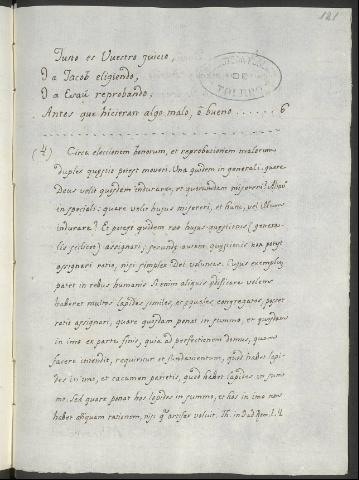 121
Justo es Vuestro juicio,
Y a Jacob eligiendo,
Y a Esaú reprobando,
Antes que hicieran algo malo, ò bueno ...... 6
DE
TOLEDO
(4) Circa electionem bonorum, et reprobationem malorum
duplex quæstio potest moveri. Una quidem in generali: quare
Deus velit quosdam indurare, et quorumdam misereri? Alia
in speciali: quare velit hujus misereri, et hunc, vel illum
indurare? Et potest quidem ratio hujus quæstionis (genera-
lis scilicet) assignari; secundæ autem quæstionis non potest
assignari ratio, nisi simplex Dei voluntas. Cujus exemplum
patet in rebus humanis. Si enim aliquis ædificare volens
haberet multos lapides similes, et æquales congregatos, posset
ratio assignari, quare quosdam ponat in summo, et quosdam
in imo ex parte finis, quia ad perfectionem domus, quam
facere intendit, requiritur et fundamentum, quod habet lapi-
des in imo, et cacumen parietis, quod habet lapides in sum-
mo. Sed quare ponat hos lapides in summo, et hos in imo non
habet aliquam rationem, nisi qa artifex voluit. Th. in